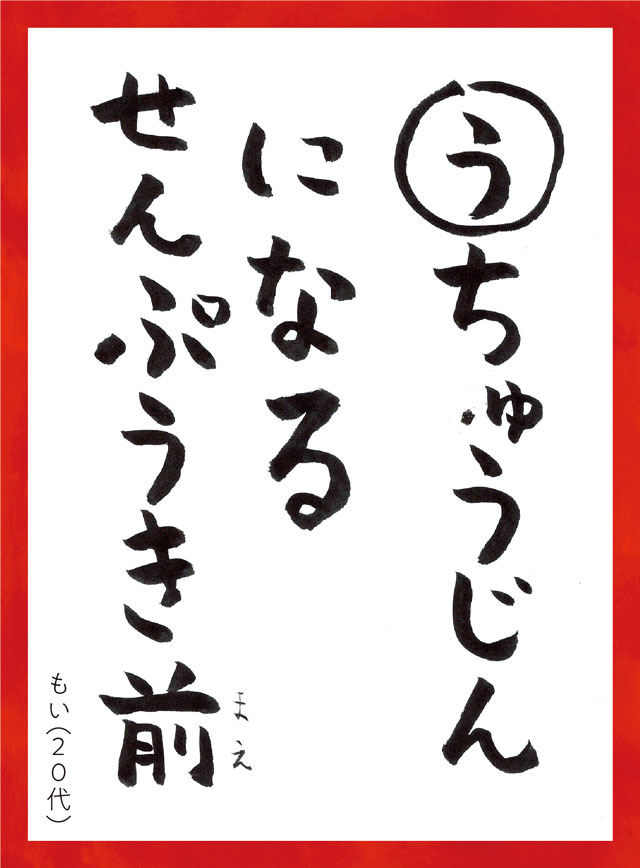 うちゅうじん
になる
せんぷうき前
まえ
もい(20代)